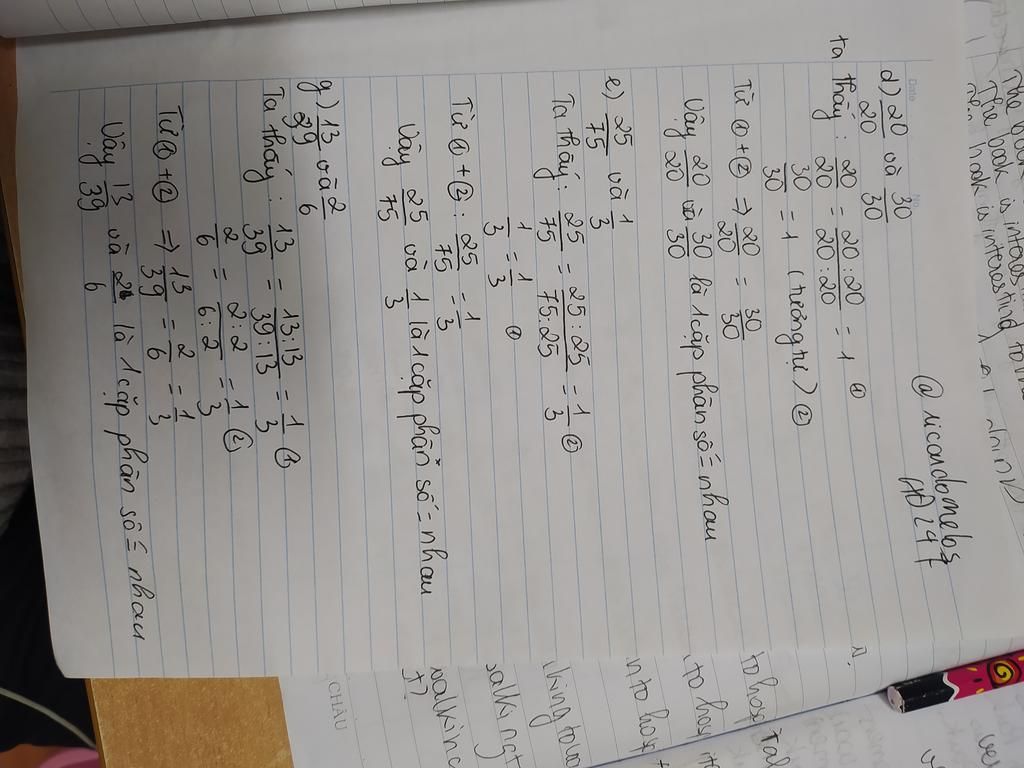 @ricandomelo7
HĐ 247
d) 20/20 và 30/30
ta thấy : 20/20 = 20:20/20:20 = 1 ①
30/30 = 1 (tương tự) ②
Từ ① + ② ⇒ 20/20 = 30/30
Vậy 20/20 và 30/30 là 1 cặp phân số = nhau
e) 25/75 và 1/3
Ta thấy : 25/75 = 25:25/75:25 = 1/3 ②
1/3 = 1/3 ①
Từ ① + ② : 25/75 = 1/3
Vậy 25/75 và 1/3 là 1 cặp phân số = nhau
g) 13/39 và 2/6
Ta thấy : 13/39 = 13:13/39:13 = 1/3 ①
2/6 = 2:2/6:2 = 1/3 ②
Từ ① + ② ⇒ 13/39 = 2/6 = 1/3
Vậy 13/39 và 2/6 là 1 cặp phân số = nhau
The book is interes
The book is interesting to
CHÂU